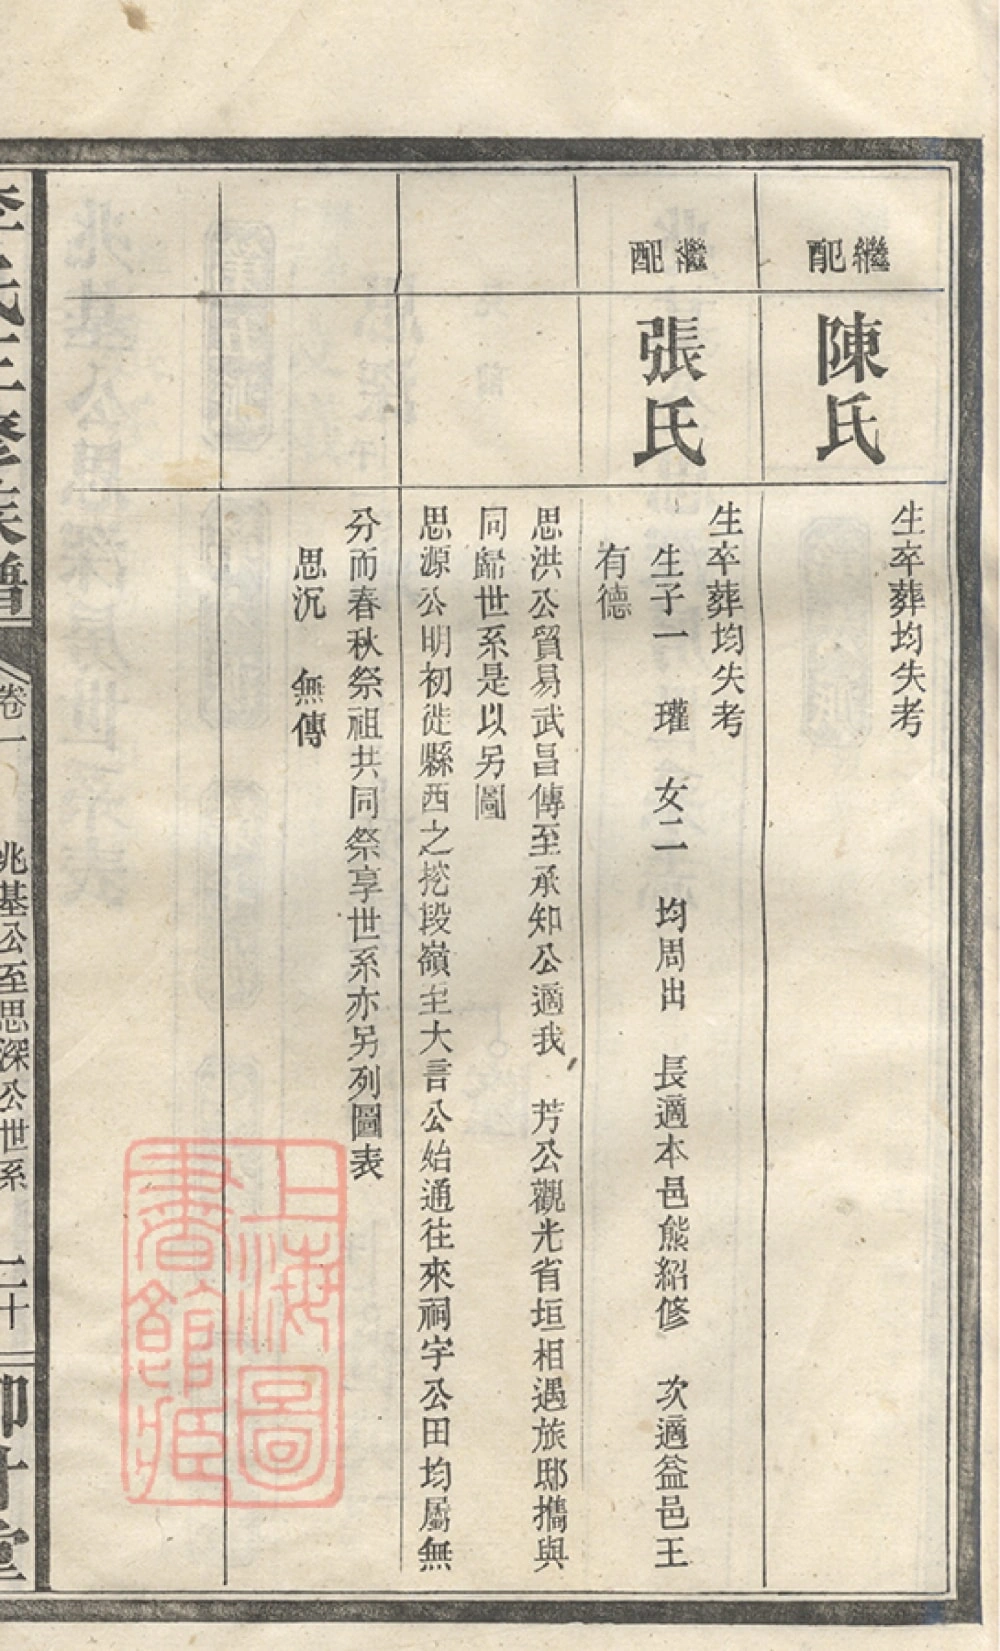 繼配
陳氏
生卒葬均失考
繼配
張氏
生卒葬均失考
生子一　瓘　女二　均周出　長適本邑熊紹修　次適益邑王
有德
思洪公貿易武昌傳至承知公適我　芳公觀光省垣相遇旅邸攜與
同歸世系是以另圖
思源公明初徙縣西之挖段嶺至大言公始通往來祠宇公田均屬無
分而春秋祭祖共同祭享世系亦另列圖表
思沉　無傳
李氏三修族譜
卷一
兆基公至思深公世系
二十
上海圖書館藏